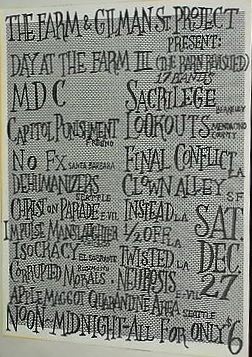 THE FARM & GILMAN ST PROJECT
PRESENT:
DAY AT THE FARM III (THE BARN REVISITED)
17 BANDS
MDC
SACRILEGE BERKELEY
CAPITOL PUNISHMENT FRESNO
LOOKOUTS MENDOCINO COUNTY
NO FX SANTA BARBARA
FINAL CONFLICT LA
DEHUMANIZERS SEATTLE
CLOWN ALLEY S.F.
CHRIST ON PARADE E-VIL
INSTEAD LA
SAT
IMPULSE MANSLAUGHTER
1/2 OFF LA
DEC
ISOCRACY EL SOBRANTE
TWISTED LA
27
CORRUPTED MORALS RICHMOND
NEUROSIS E-VIL
APPLE MAGGOT QUARANTINE AREA SEATTLE
NOON-MIDNIGHT-ALL FOR ONLY $6